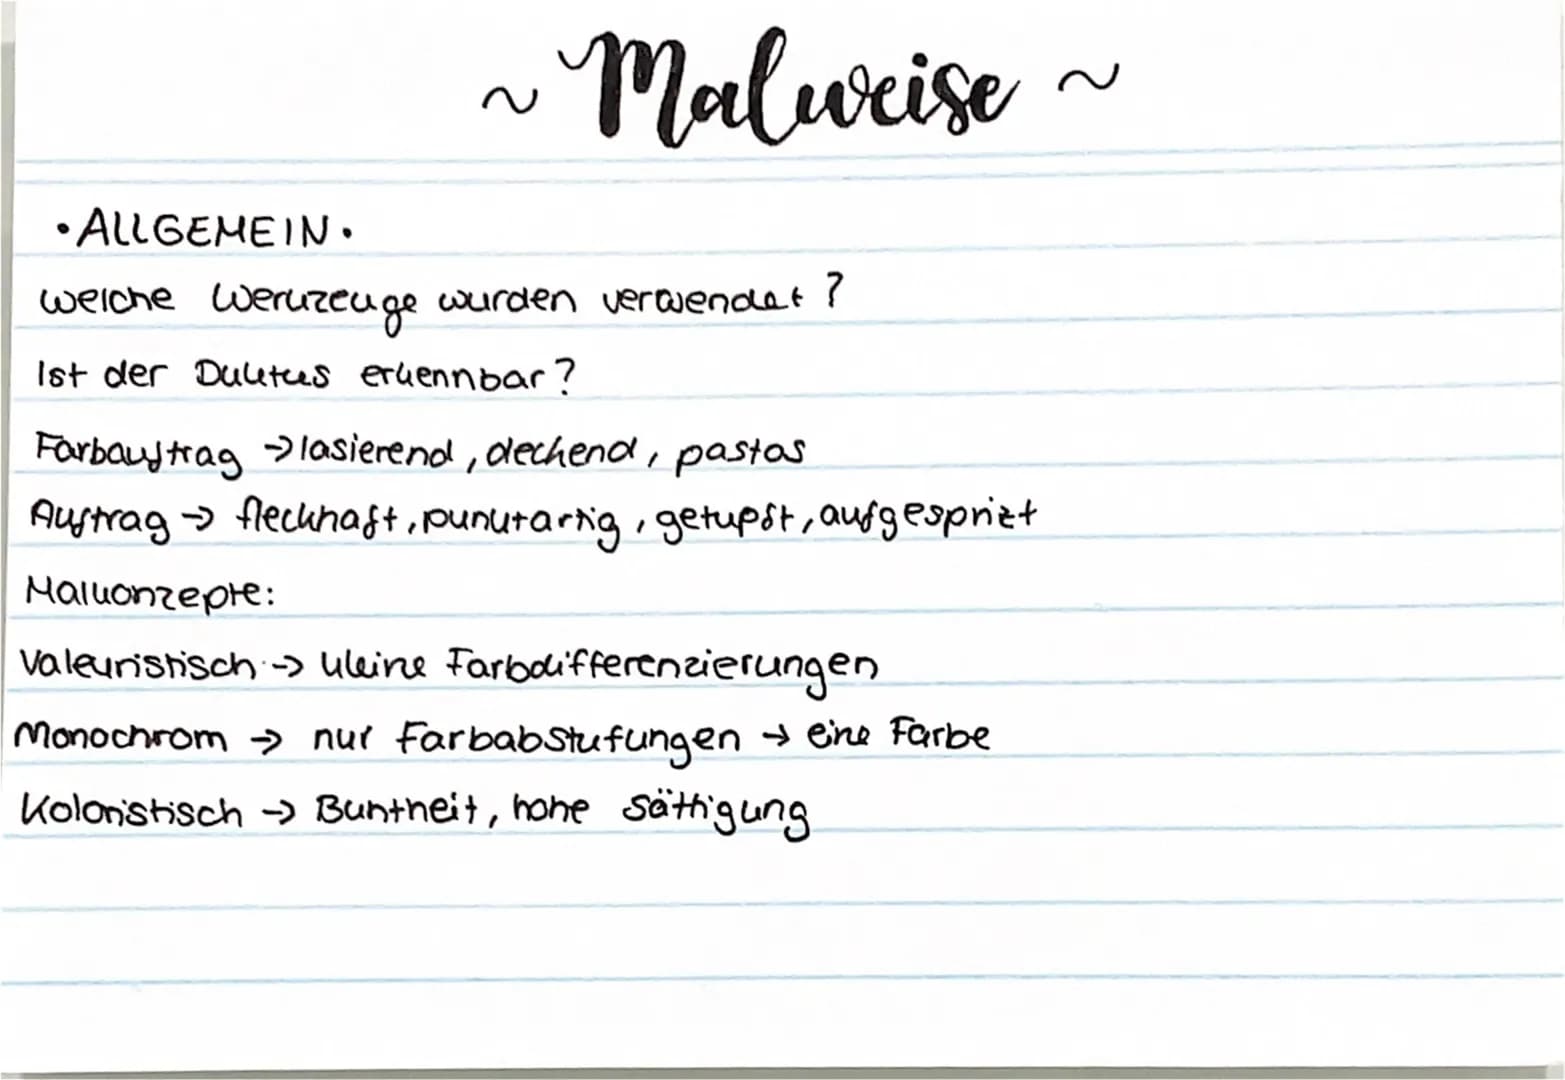 ~ Malweise ~
• ALLGEMEIN •
welche Werkzeuge wurden verwendet ?
Ist der Duktus erkennbar ?
Farbauftrag → lasierend, deckend, pastos
Auftrag → fleckhaft, punktartig, getupft, aufgesprizt
Malkonzepte:
Valeuristisch → kleine Farbdifferenzierungen
Monochrom → nur Farbabstufungen → eine Farbe
Koloristisch → Buntheit, hohe Sättigung